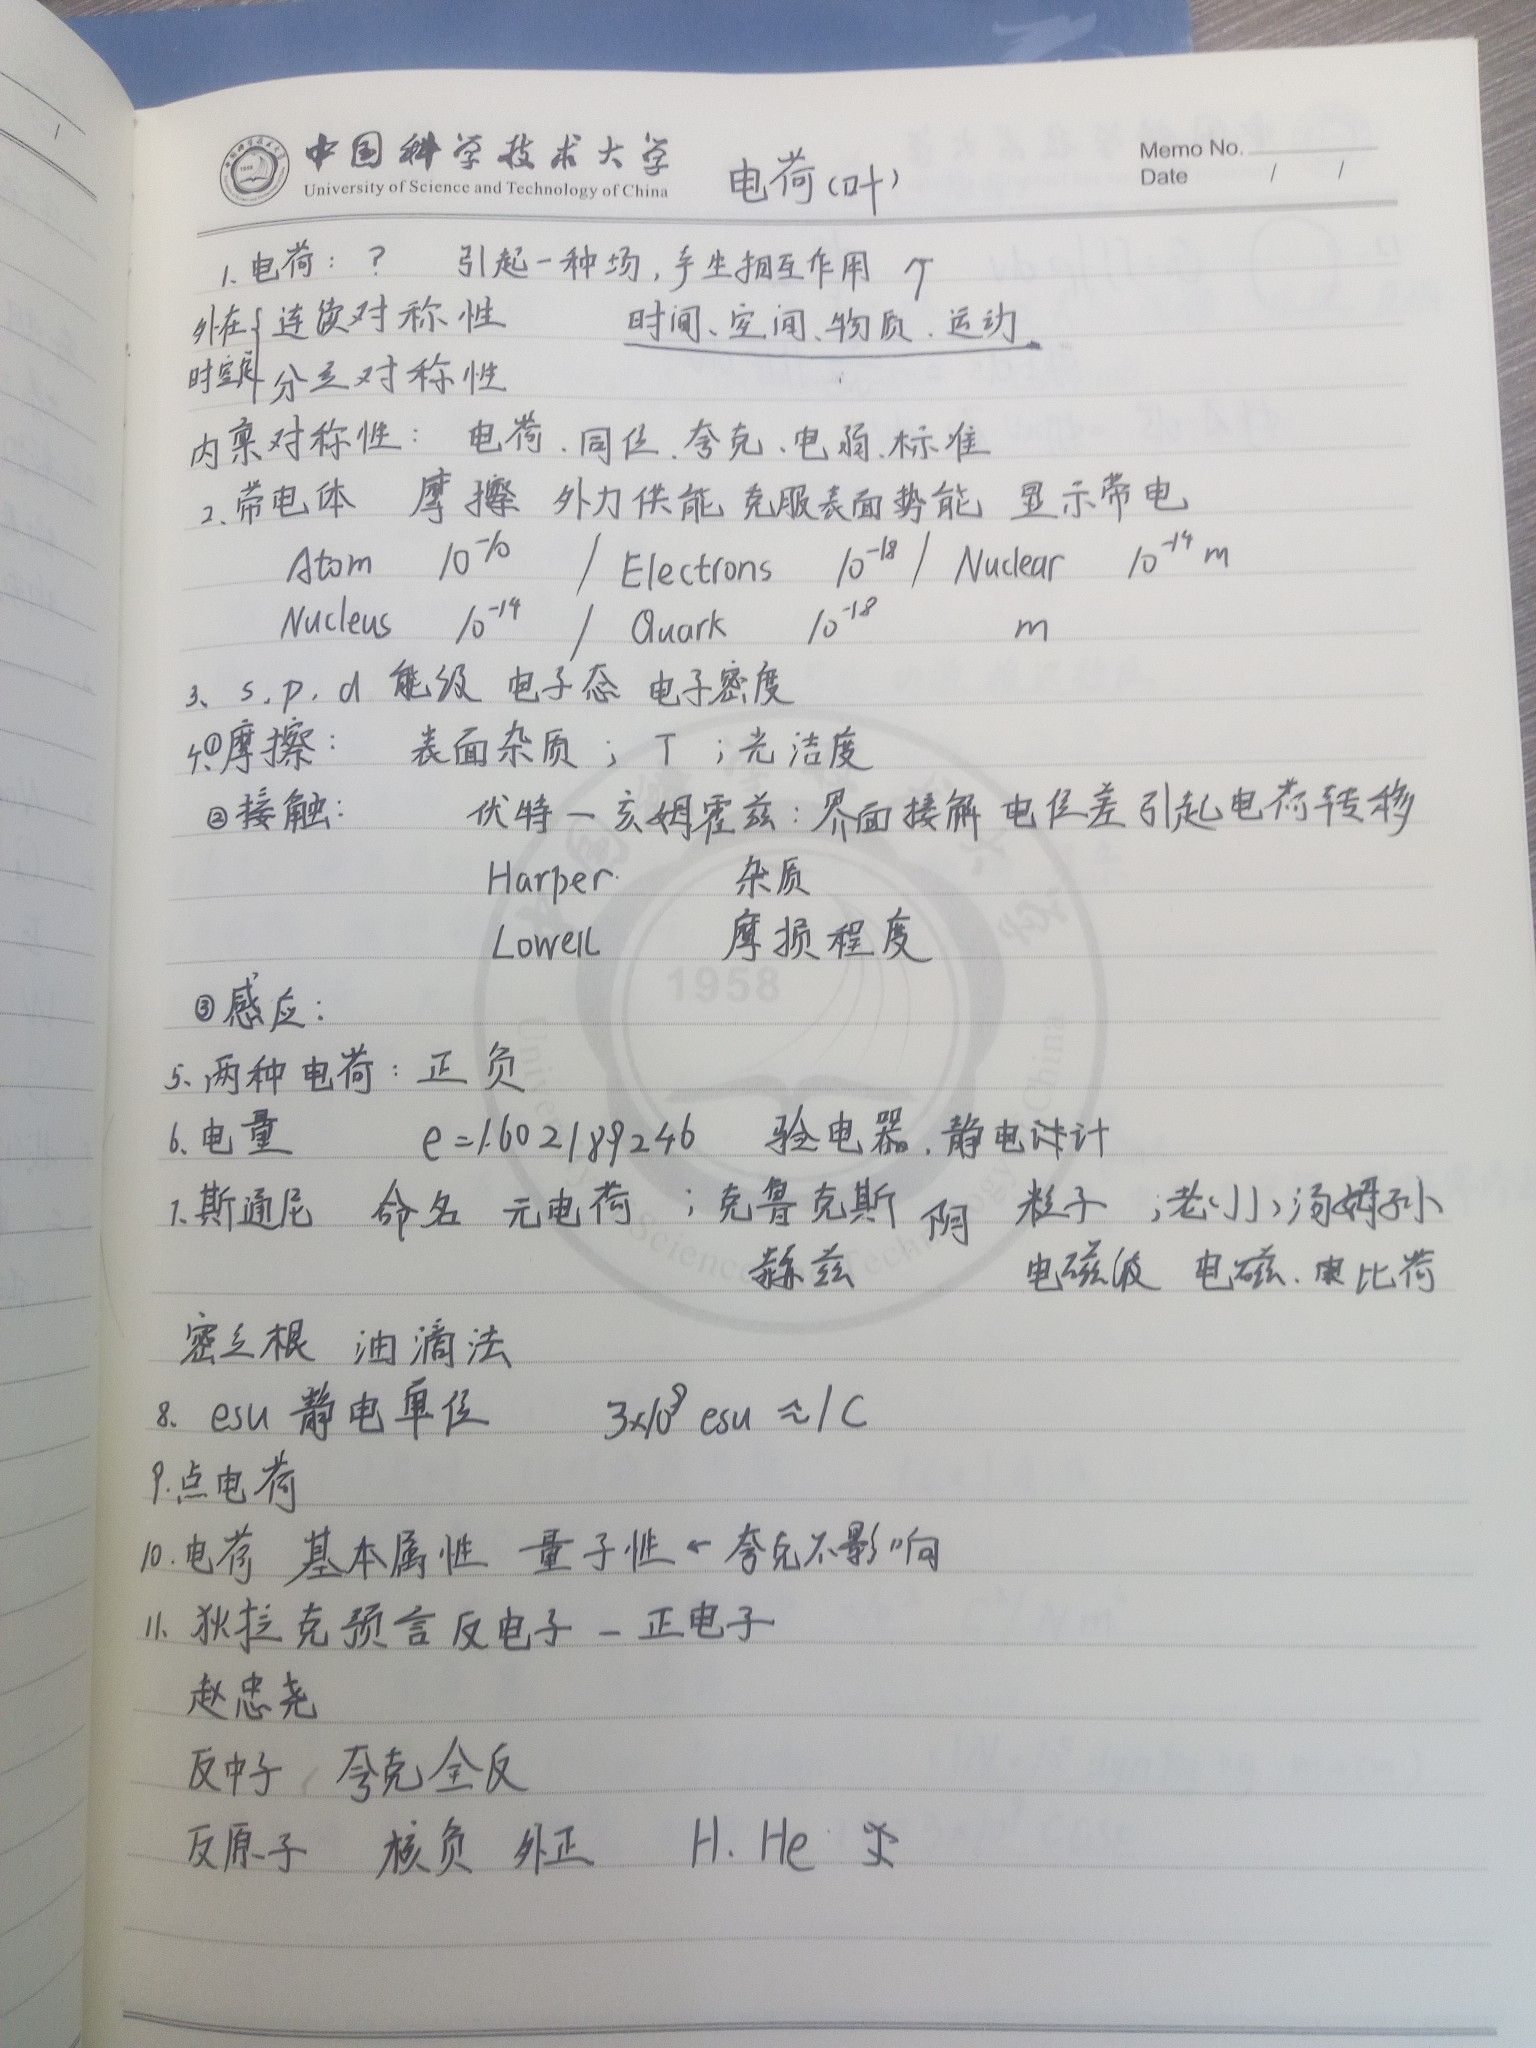 中国科学技术大学
University of Science and Technology of China
电荷(叶)
Memo No.
Date / /
1. 电荷: ? 引起一种场,产生相互作用 ↑
外在 { 连续对称性 时间、空间、物质、运动
时空 分立对称性
内禀对称性: 电荷、同位、夸克、电弱、标准
2、带电体 摩擦 外力供能 克服表面势能 显示带电
Atom 10⁻¹⁰ / Electrons 10⁻¹⁸ / Nuclear 10⁻¹⁴ m
Nucleus 10⁻¹⁴ / Quark 10⁻¹⁸ m
3、s, p, d 能级 电子态 电子密度
4、①摩擦: 表面杂质; T ;光洁度
②接触: 伏特—亥姆霍兹: 界面接解 电位差引起电荷转移
Harper 杂质
Lowell 摩损程度
③感应:
5、两种电荷: 正 负
6、电量 e=1.602189246 验电器、静电计
7、斯通尼 命名 元电荷 ; 克鲁克斯 阴 粒子 ;老(小)汤姆孙
赫兹 电磁波 电磁、 比荷
密立根 油滴法
8、esu 静电单位 3×10⁹ esu ≈ 1 C
9、点电荷
10、电荷 基本属性 量子性 ← 夸克不影响
11、狄拉克预言反电子 — 正电子
赵忠尧
反中子 夸克全反
反原子 核负 外正 H. He
1958